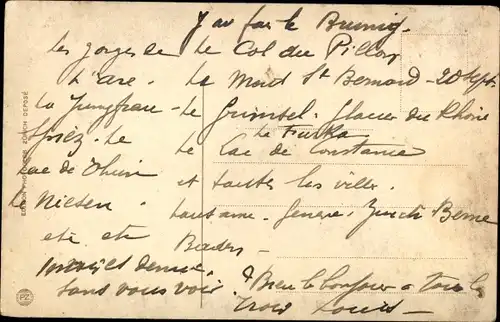 J'ai fait le Brunig.
les gorges de le Col du Pillon
l'are. le Mont St Bernard - 20 Sept.
la Jungfrau - le Grimsel. Glacier du Rhône
Spiez. le la Furka
Lac de Thun le Lac de Constance
le Niesen. et toutes les villes.
Lausanne. Geneve. Zurich Berne
etc etc Baden
sans vous voir. Bien le bonjour a tous les
trois Louis
PZ